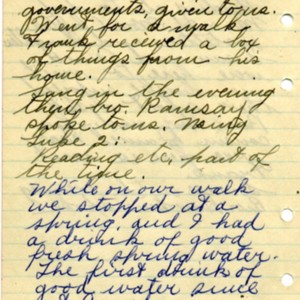 governments, given to us.
Went for a walk
Frank received a box
of things from his
home.
Sang in the evening
then bro. Ramsay
spoke to us.
Luke 2:
Reading etc. part of
the time.
While on our walk
we stopped at a
spring, and I had
a drink of good
fresh spring water.
The first drink of
good water since